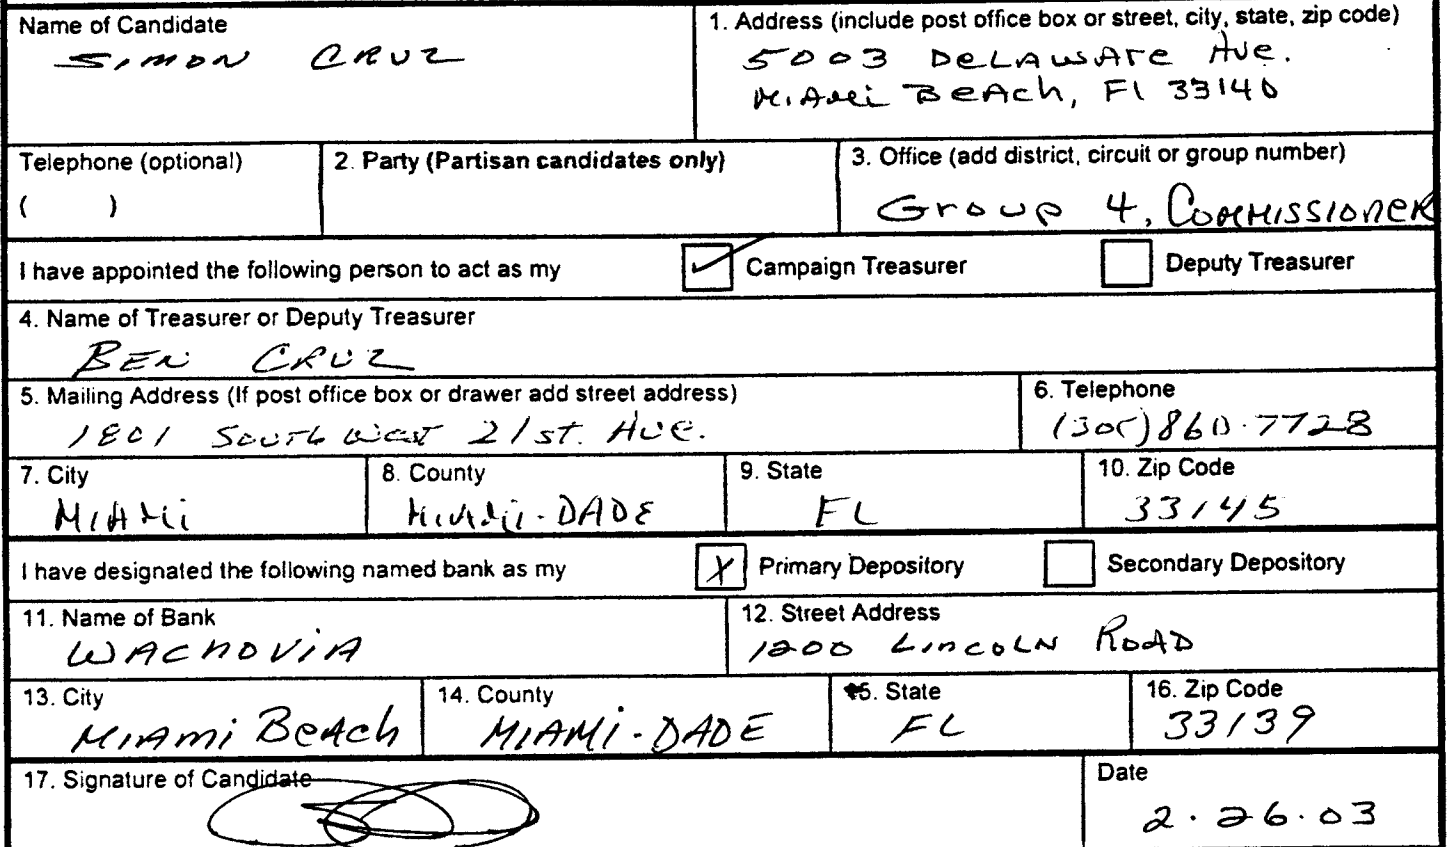 Name of Candidate
SIMON CRUZ
1. Address (include post office box or street, city, state, zip code)
5003 DELAWARE AVE.
MIAMI BEACH, Fl 33140
Telephone (optional)
( )
2. Party (Partisan candidates only)
3. Office (add district, circuit or group number)
Group 4, COMMISSIONER
I have appointed the following person to act as my
Campaign Treasurer
Deputy Treasurer
4. Name of Treasurer or Deputy Treasurer
BEN CRUZ
5. Mailing Address (If post office box or drawer add street address)
1801 South West 21st. Ave.
6. Telephone
(305) 860.7728
7. City
MIAMI
8. County
MIAMI-DADE
9. State
FL
10. Zip Code
33145
I have designated the following named bank as my
X Primary Depository
Secondary Depository
11. Name of Bank
WACHOVIA
12. Street Address
1200 LINCOLN ROAD
13. City
MIAMI BEACH
14. County
MIAMI-DADE
15. State
FL
16. Zip Code
33139
17. Signature of Candidate
Date
2.26.03